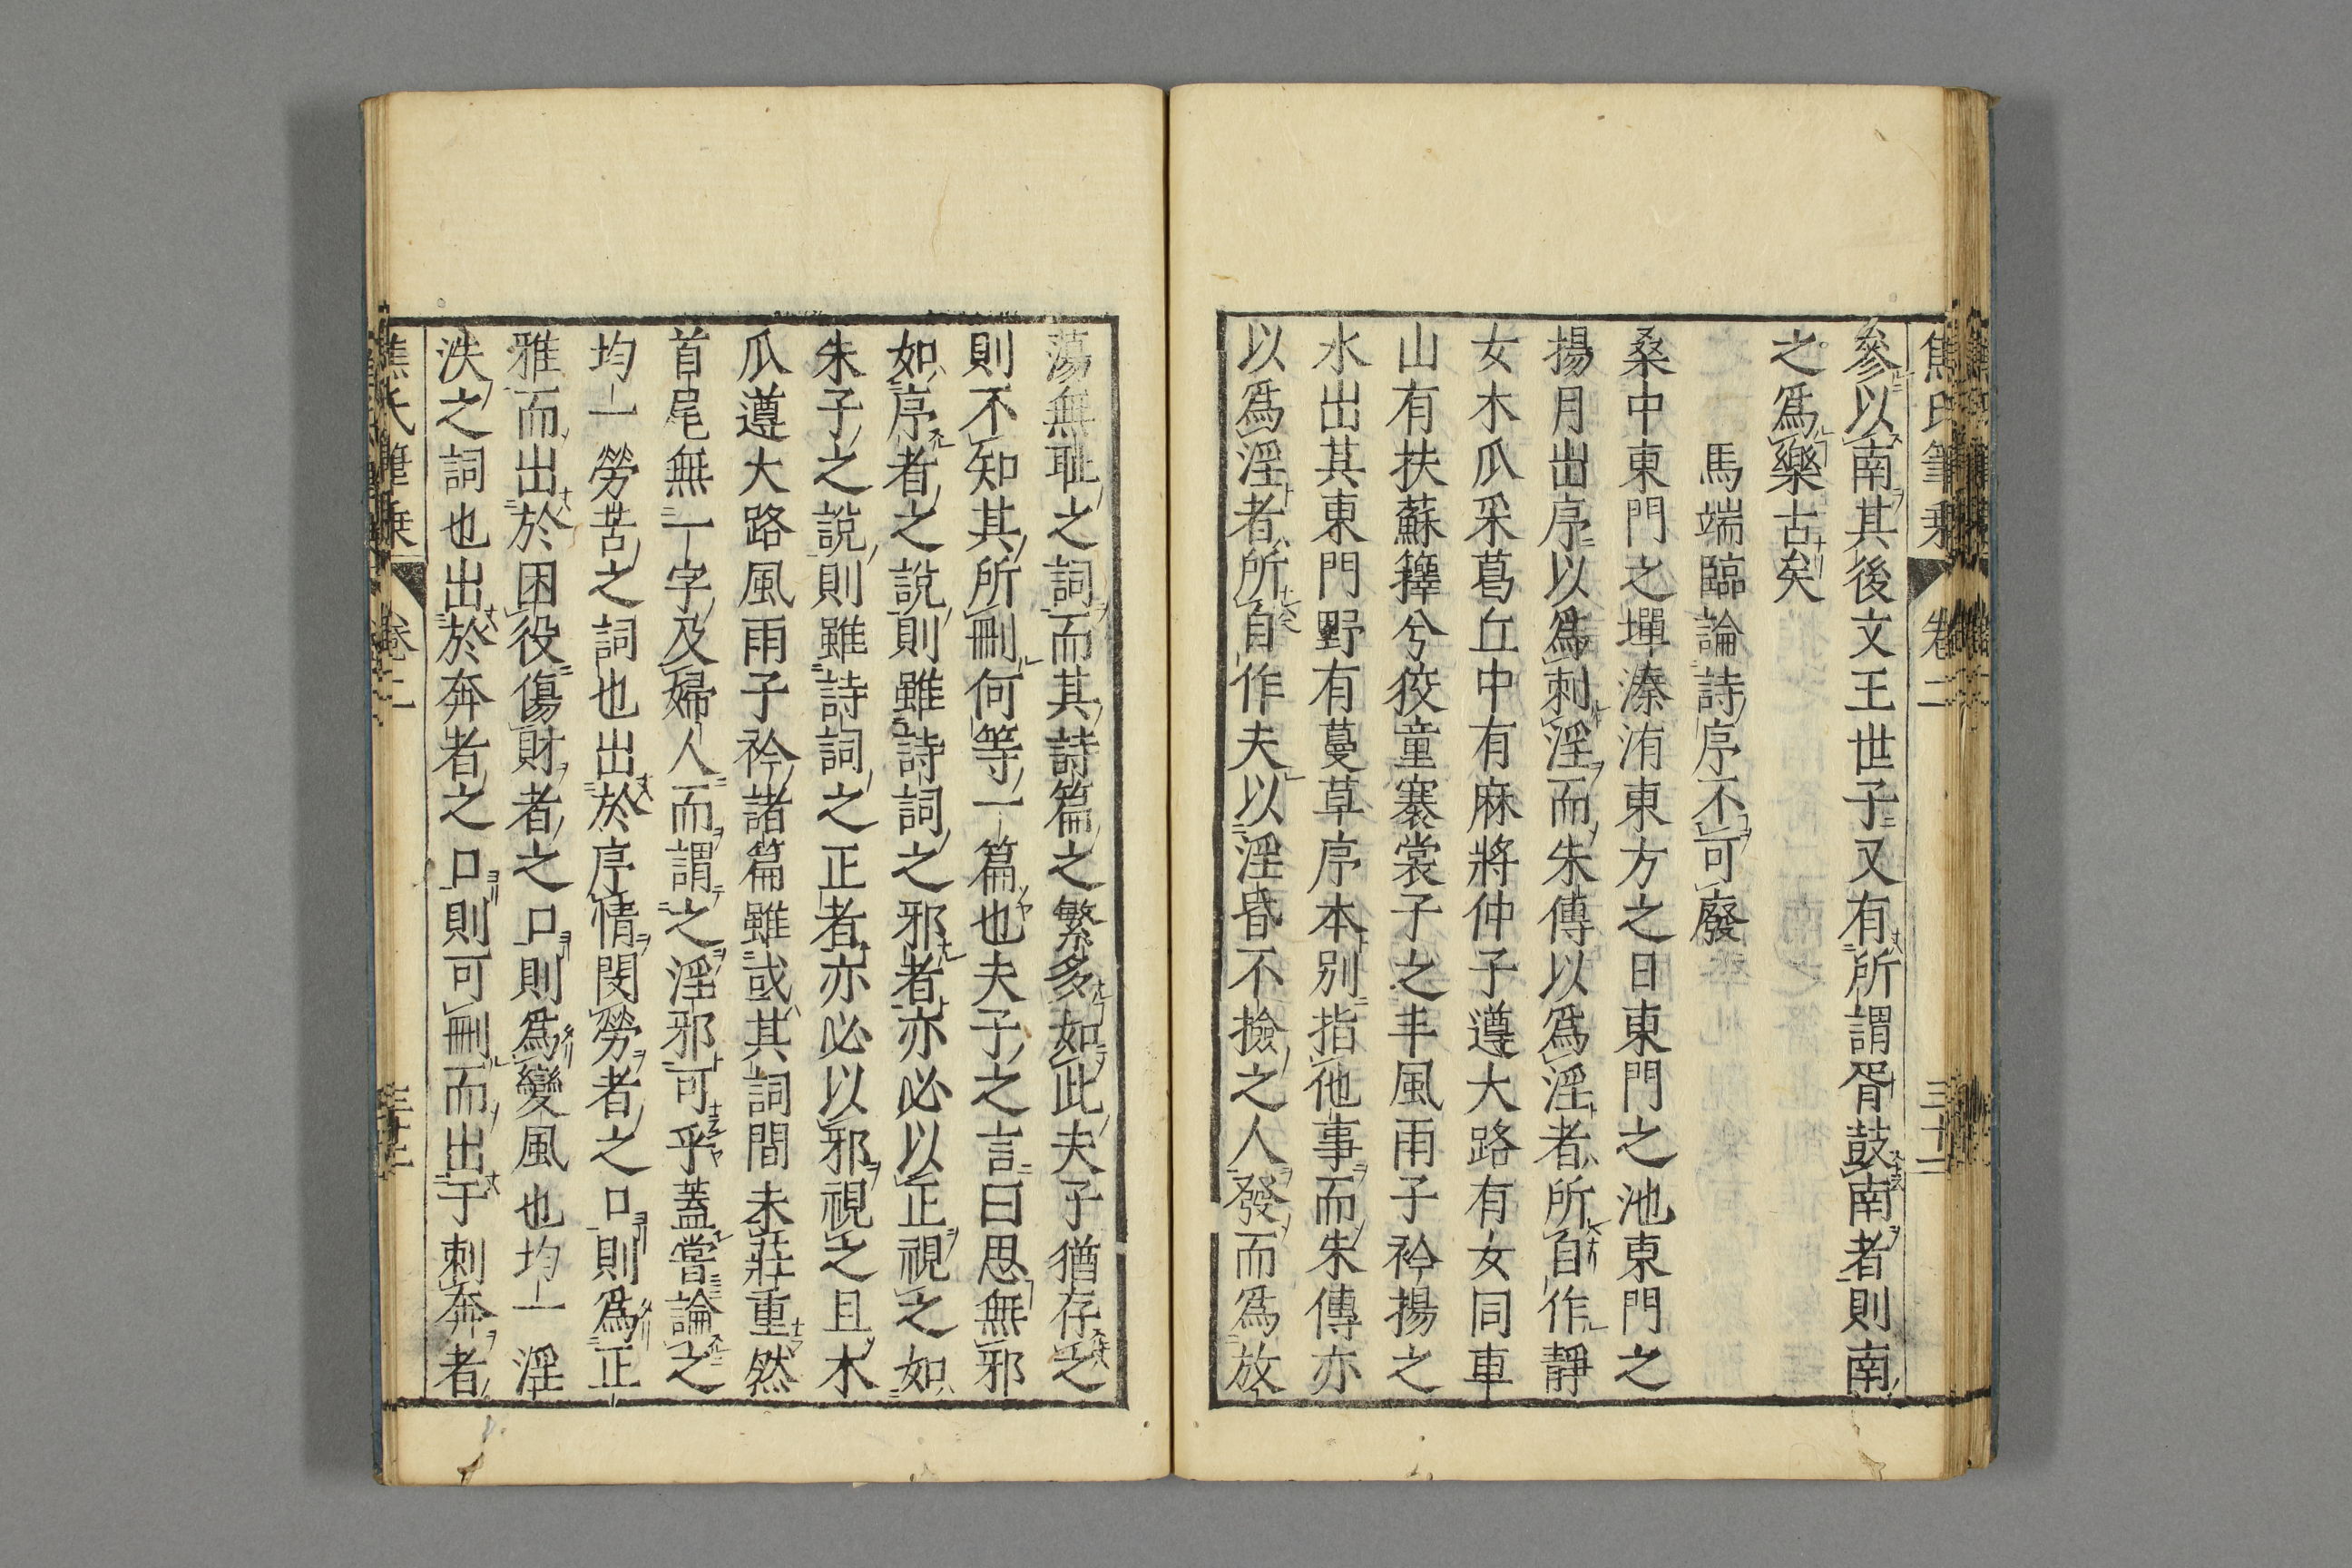 焦氏筆乗 卷二
參以南其後文王世子又有所謂胥鼓南者則南
之爲樂古矣
馬端臨論詩序不可廢
桑中東門之墠溱洧東方之日東門之池東門之
揚月出序以爲刺淫而朱傳以爲淫者所自作靜
女木瓜采葛丘中有麻將仲子遵大路有女同車
山有扶蘇蘀兮狡童褰裳子之丰風雨子衿揚之
水出其東門野有蔓草序本别指他事而朱傳亦
以爲淫者所自作夫以淫昏不撿之人發而爲放
蕩無耻之詞而其詩篇之繁多如此夫子猶存之
則不知其所刪何等一篇也夫子之言曰思無邪
如序者之說則雖詩詞之邪者亦必以正視之如
朱子之說則雖詩詞之正者亦必以邪視之且木
瓜遵大路風雨子衿諸篇雖或其詞間未莊重然
首尾無一字及婦人而謂之淫邪可乎蓋嘗論之
均一勞苦之詞也出於序情閔勞者之口則爲正
雅而出於困役傷財者之口則爲變風也均一淫
泆之詞也出於奔者之口則可刪而出于刺奔者
焦氏筆乗 卷二